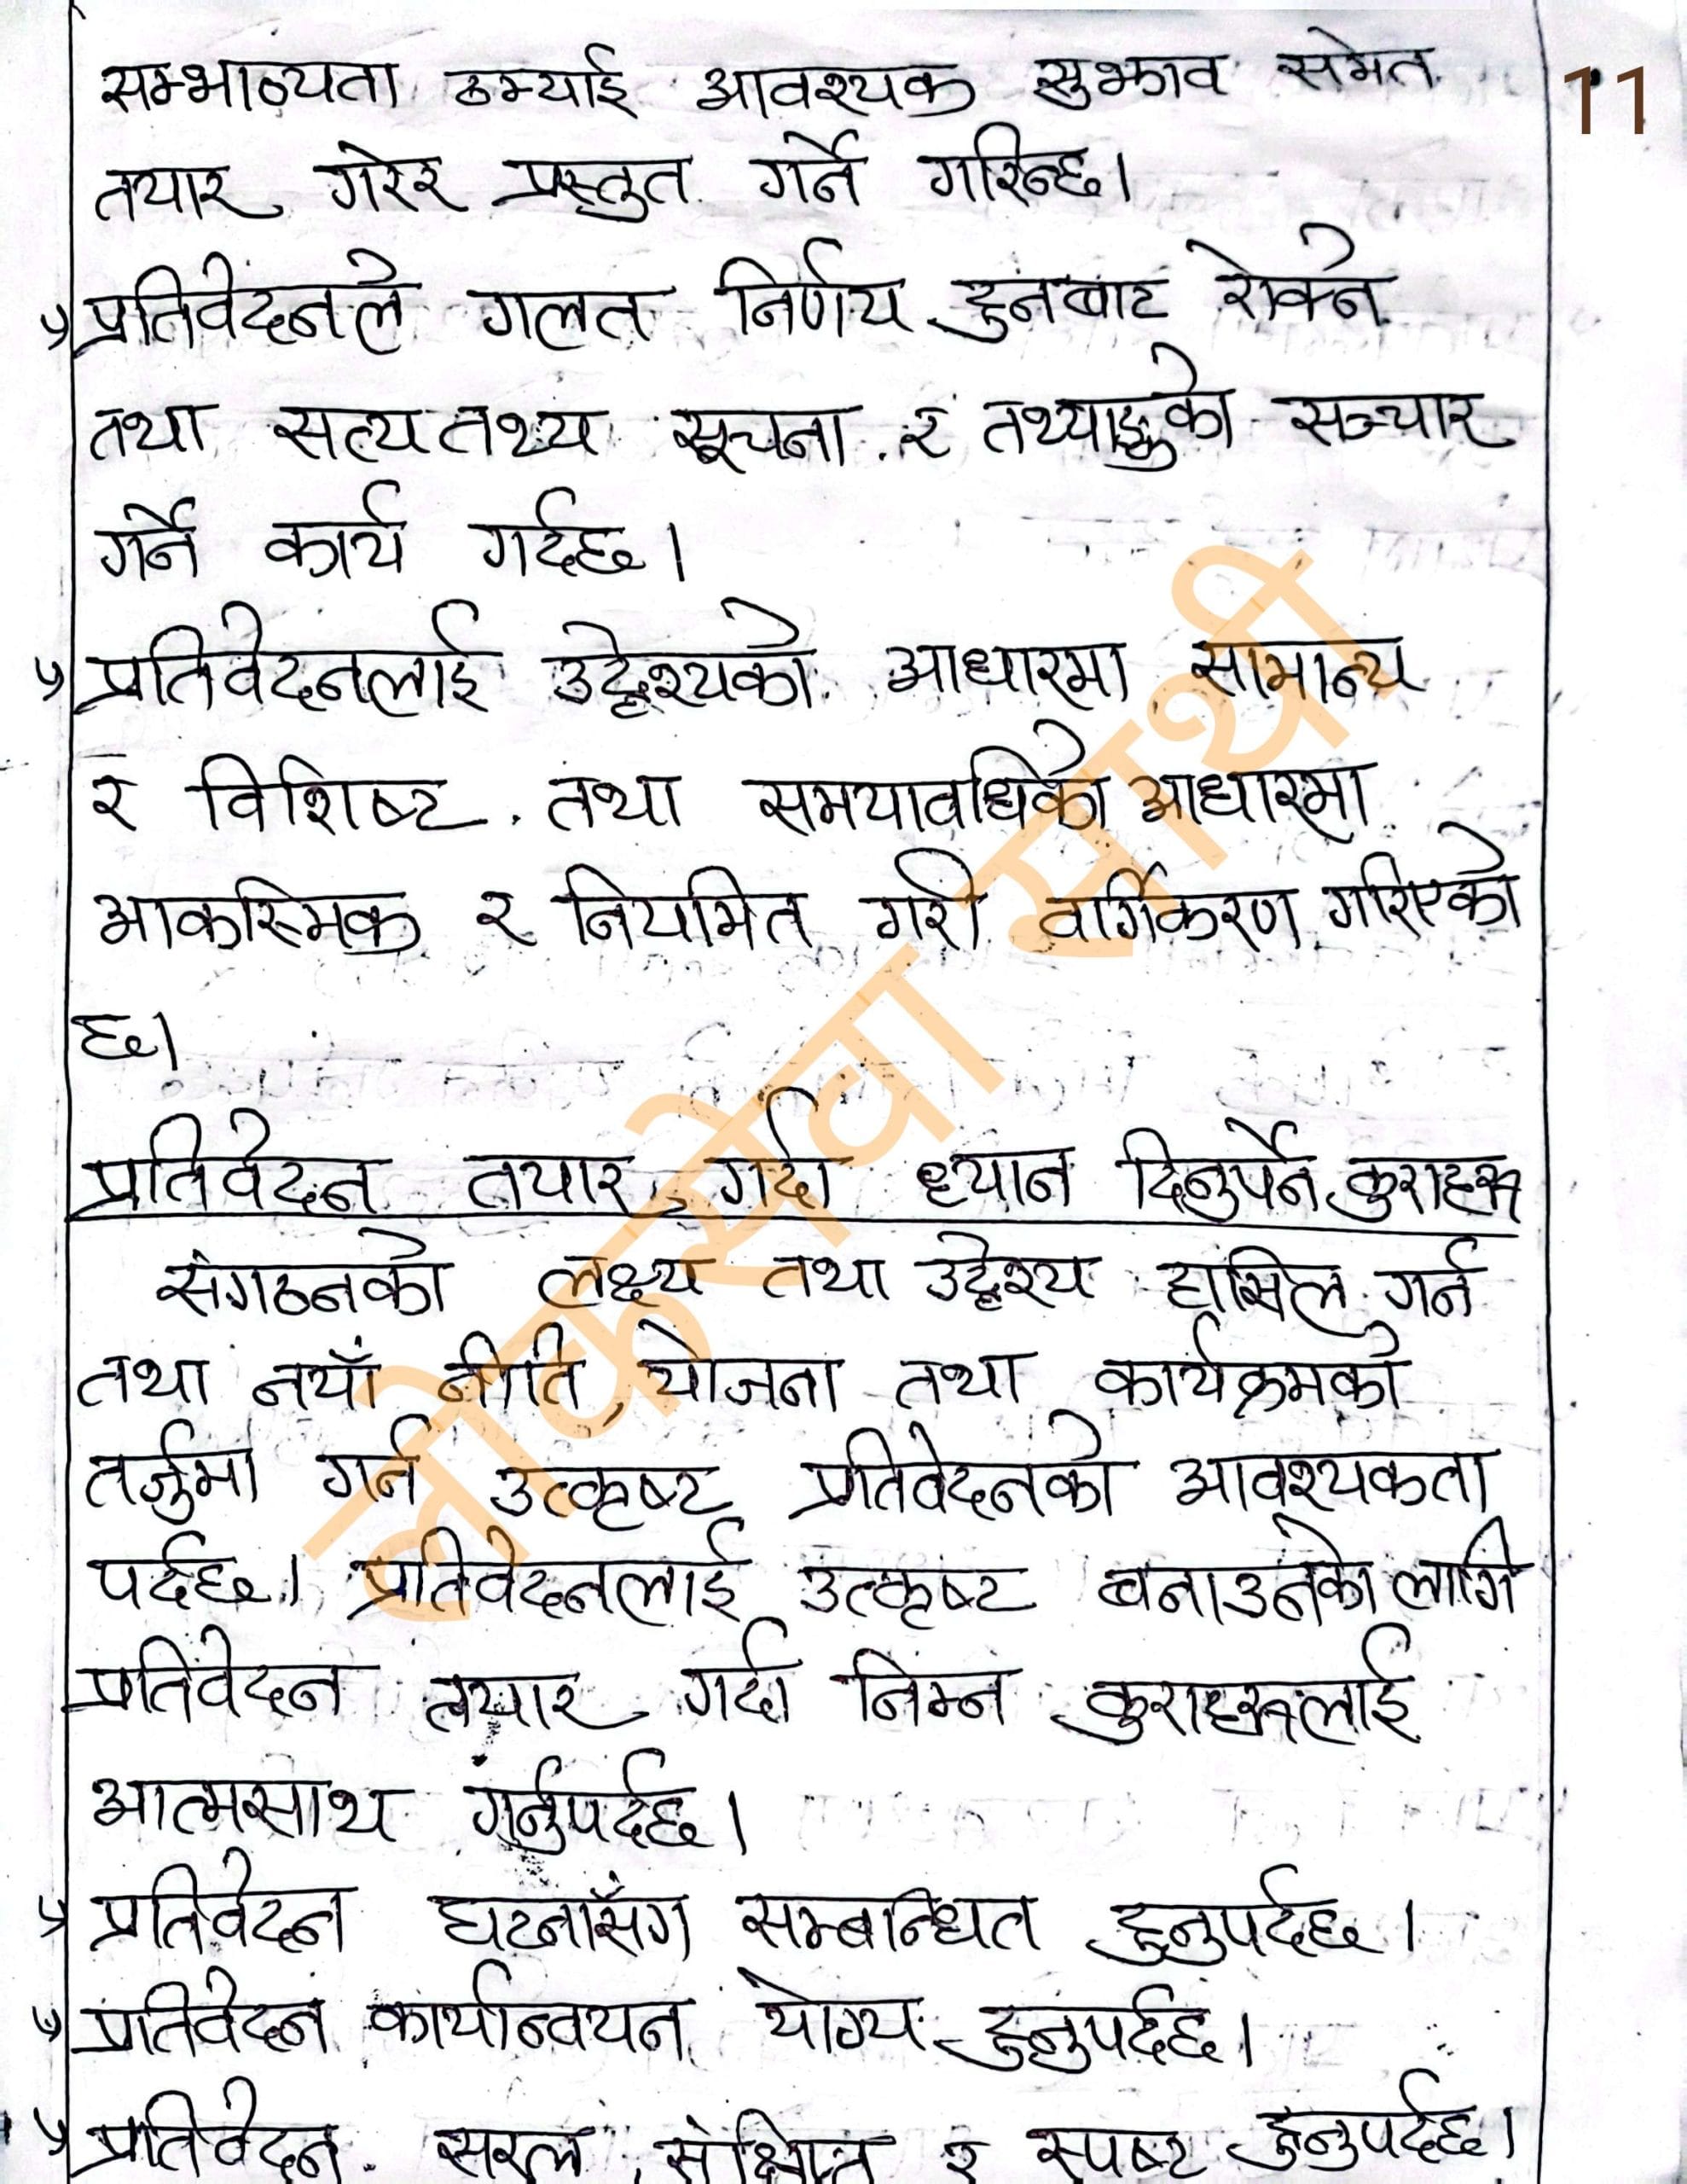 सम्भाव्यता ठम्याई आवश्यक सुझाव समेत
11
तयार गरेर प्रस्तुत गर्ने गरिन्छ।
प्रतिवेदनले गलत निर्णय हुनबाट रोक्ने
तथा सत्य तथ्य सूचना र तथ्याङ्कको सञ्चार
गर्ने कार्य गर्दछ।
प्रतिवेदनलाई उद्देश्यको आधारमा सामान्य
र विशिष्ट तथा समयावधिको आधारमा
आकस्मिक र नियमित गरी वर्गिकरण गरिएको
छ।
प्रतिवेदन तयार गर्दा ध्यान दिनुपर्ने कुराहरू
संगठनको लक्ष्य तथा उद्देश्य हासिल गर्न
तथा नयाँ नीति, योजना तथा कार्यक्रमको
तर्जुमा गर्न उत्कृष्ट प्रतिवेदनको आवश्यकता
पर्दछ। प्रतिवेदनलाई उत्कृष्ट बनाउनको लागि
प्रतिवेदन तयार गर्दा निम्न कुराहरूलाई
आत्मसाथ गर्नुपर्दछ।
प्रतिवेदन घटनासँग सम्बन्धित हुनुपर्दछ।
प्रतिवेदन कार्यान्वयन योग्य हुनुपर्दछ।
प्रतिवेदन सरल, संक्षिप्त र स्पष्ट हुनुपर्दछ।
लोकसेवा साथी